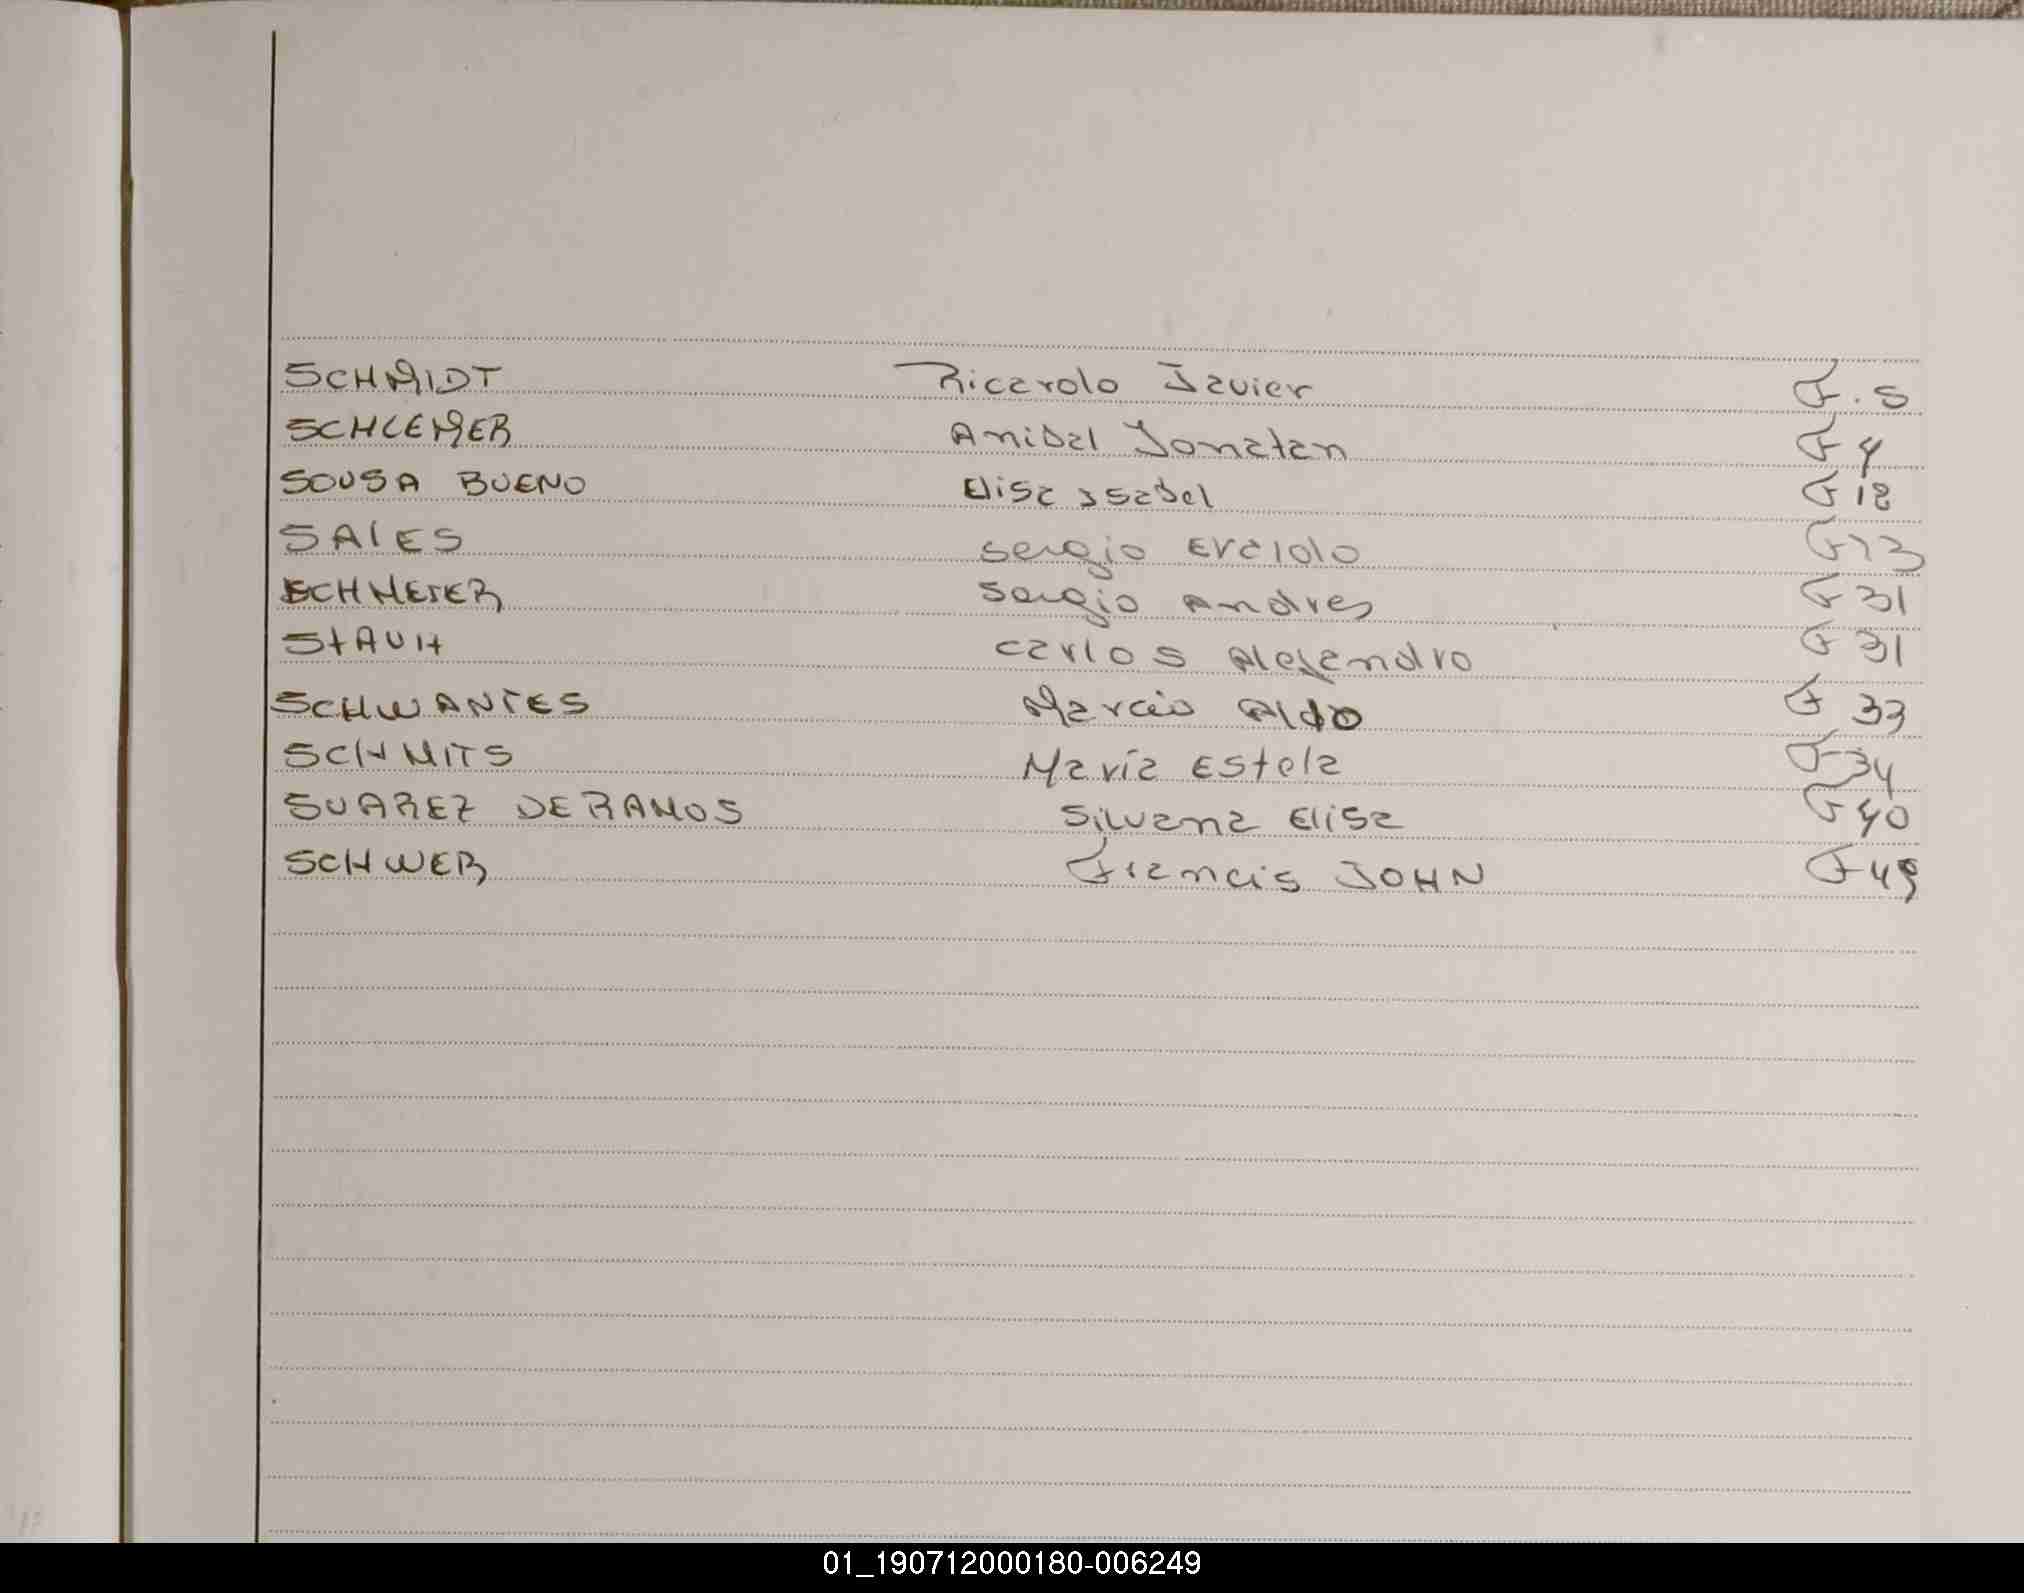 SCHMIDT Ricardo Javier F. 5
SCHLEMER Anibal Jonatan F 4
SOUSA BUENO Elisa Isabel F 18
SALES Sergio Eraldo F 23
SCHMEIER Sergio Andres F 31
Carlos Alejandro F 31
SCHWANTES Marcio Aldo F 33
SCHMITS María Estela F 34
SUAREZ DE RAMOS Silvana Elisa F 40
SCHWEB Francis JOHN F 49
01_190712000180-006249